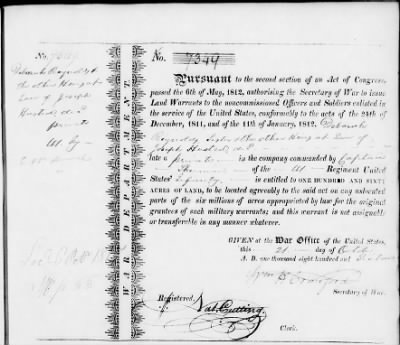 No. 7349
Deborah Reynolds &
the other Heirs at
Law of Joseph
private
No. 7349
Pursuant to the second section of an Act of Congress,
passed the 6th of May, 1812, authorising the Secretary of War to issue
Land Warrants to the noncommissioned Officers and Soldiers enlisted in
the service of the United States, conformably to the acts of the 24th of
December, 1811, and of the 11th of January, 1812, Deborah
the other Heirs at Law of
Joseph
late a private in the company commanded by Captain
of the Regiment United
States' Infantry is entitled to ONE HUNDRED AND SIXTY
ACRES OF LAND, to be located agreeably to the said act on any unlocated
parts of the six millions of acres appropriated by law for the original
grantees of such military warrants; and this warrant is not assignable
or transferable in any manner whatever.
GIVEN at the War Office of the United States,
this 21 day of
A. D. one thousand eight hundred and
Wm H Crawford
Secretary of War.
Registered,
Nat. Cutting
Clerk.
WAR DEPARTMENT